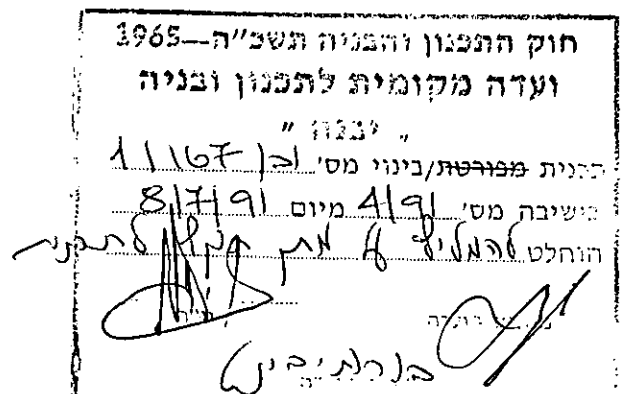 חוק התכנון והבניה תשכ״ה—1965
ועדה מקומית לתכנון ובניה
„ יבנה ״
תכנית מפורטת/בינוי מס׳ בן/167/1
בישיבה מס׳ 4/91 מיום 8/7/91
הוחלט להמליץ על מתן תוקף לתכנית